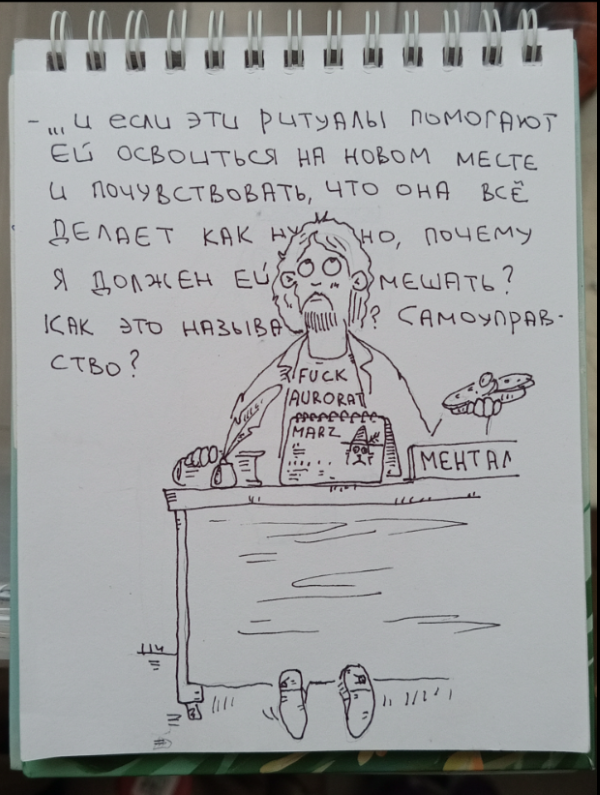 - ...И ЕСЛИ ЭТИ РИТУАЛЫ ПОМОГАЮТ
ЕЙ ОСВОИТЬСЯ НА НОВОМ МЕСТЕ
И ПОЧУВСТВОВАТЬ, ЧТО ОНА ВСЁ
ДЕЛАЕТ КАК НУ НО, ПОЧЕМУ
Я ДОЛЖЕН ЕЙ МЕШАТЬ?
КАК ЭТО НАЗЫВА ? САМОУПРАВ-
СТВО?
FUCK
AURORAT
MARZ
МЕНТАЛ